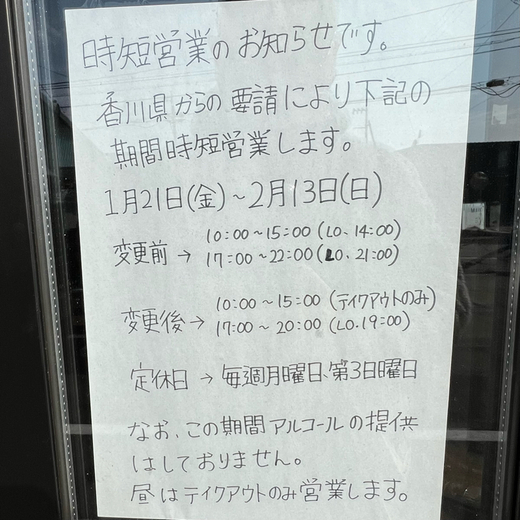 時短営業のお知らせです。
香川県からの要請により下記の
期間時短営業します。
1月21日(金)~2月13日(日)
変更前→ 10:00~15:00(LO、14:00)
17:00~22:00(LO、21:00)
変更後→ 10:00~15:00(テイクアウトのみ)
17:00~20:00(LO.19:00)
定休日→毎週月曜日、第3日曜日
なお、この期間アルコールの提供
はしておりません。
昼はテイクアウトのみ営業します。